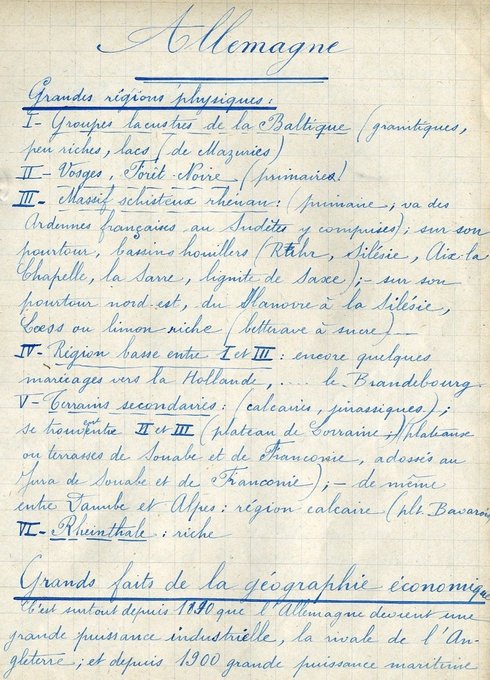 Allemagne
Grandes régions physiques :
I - Groupes lacustres de la Baltique (granitiques,
peu riches, lacs (de Mazuries)
II - Vosges, Forêt-Noire (primaires)
III - Massif schisteux rhénan : (primaire, va des
Ardennes françaises au Sudètes y comprises) ; sur son
pourtour, bassins houillers (Ruhr, Silésie, Aix-la
Chapelle, la Sarre, lignite de Saxe) ; - sur son
pourtour nord est, du Hanovre à la Silésie,
Lœss ou limon riche (betterave à sucre) -
IV - Région basse entre I et III : encore quelques
maricages vers la Hollande, .... le Brandebourg.
V - Terrains secondaires : (calcaires, jurassiques) ;
se trouvent entre II et III (plateau de Lorraine ; plateaux
ou terrasses de Souabe et de Franconie, adossés au
Jura de Souabe et de Franconie) ; - de même
entre Danube et Alpes : région calcaire (plt. Bavarois
VI - Rheinthale : riche
Grands faits de la géographie économique
C'est surtout depuis 1890 que l'Allemagne devient une
grande puissance industrielle, la rivale de l'An-
gleterre ; et depuis 1900 grande puissance maritime